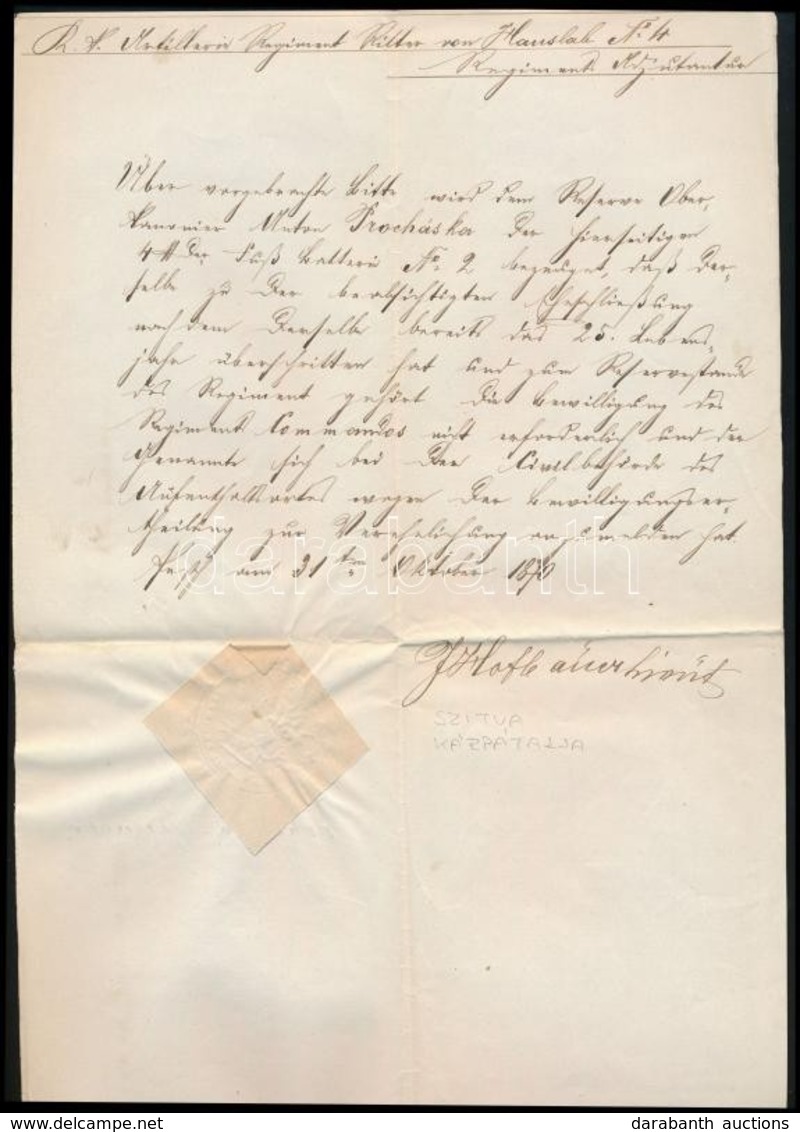 K. k. Artillerie Regiment Ritter von Hauslab No. 4
Regiments Adjutantur
Über vorgebrachte Bitte wird dem Reserve Ober-
kanonier Anton Procháska der hierseitigen
4 ℔der Fuß Batterie No. 2 bezeuget, daß der-
selbe zu der beabsichtigten Eheschließung
nachdem derselbe bereits das 25. Lebens-
jahr überschritten hat und zum Reservestande
des Regiments gehört die Bewilligung des
Regiments Commandos nicht erforderlich und der
Genannte sich bei der Civilbehörde des
Aufenthaltsortes wegen der Bewilligungser-
theilung zur Verehelichung anzumelden hat.
Pest am 31ten Oktober 1870
darabanth
SZITVA
KÁZPÁTALJA
darabanth auctions